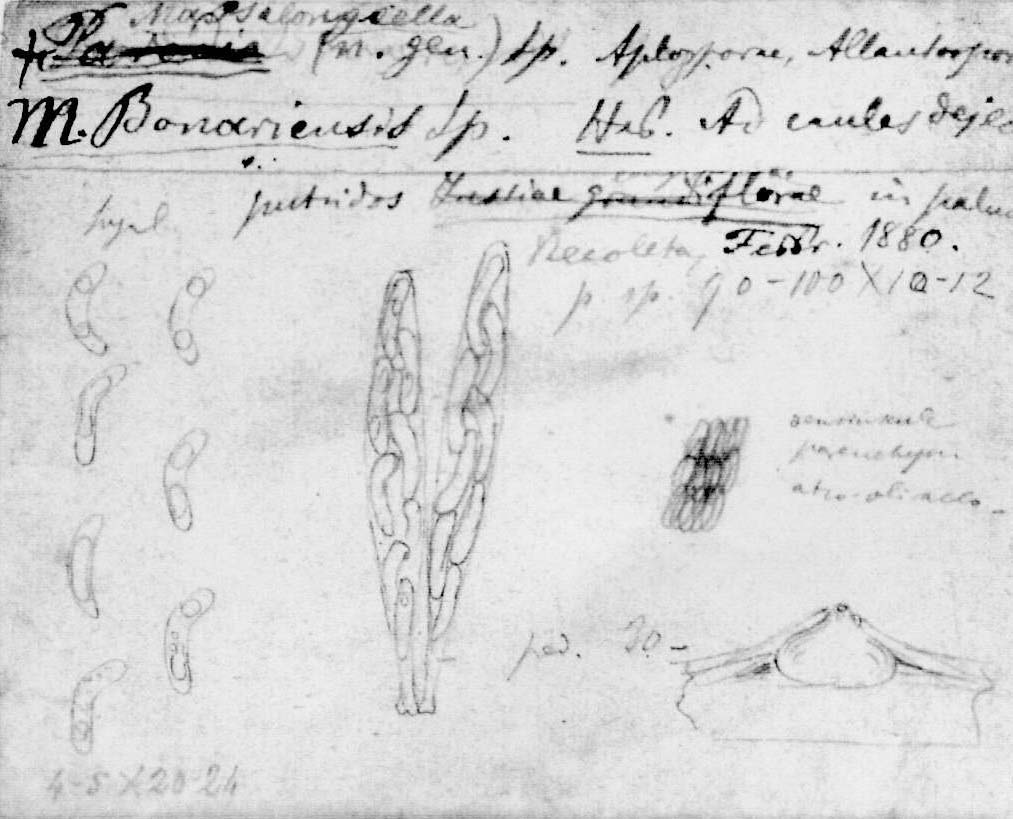 Massalongiella
(n. gen.) Sp. Aplosporae, Allantospor
M. Bonariensis Sp. Hab. Ad caules dejec
hyal putridos Jussiae grandiflorae in palud
Recoleta, Febr. 1880.
p. sp. 90-100 X 10-12
parenchym
atro-olivaceo-
ped. 20-
4-5 X 20-24